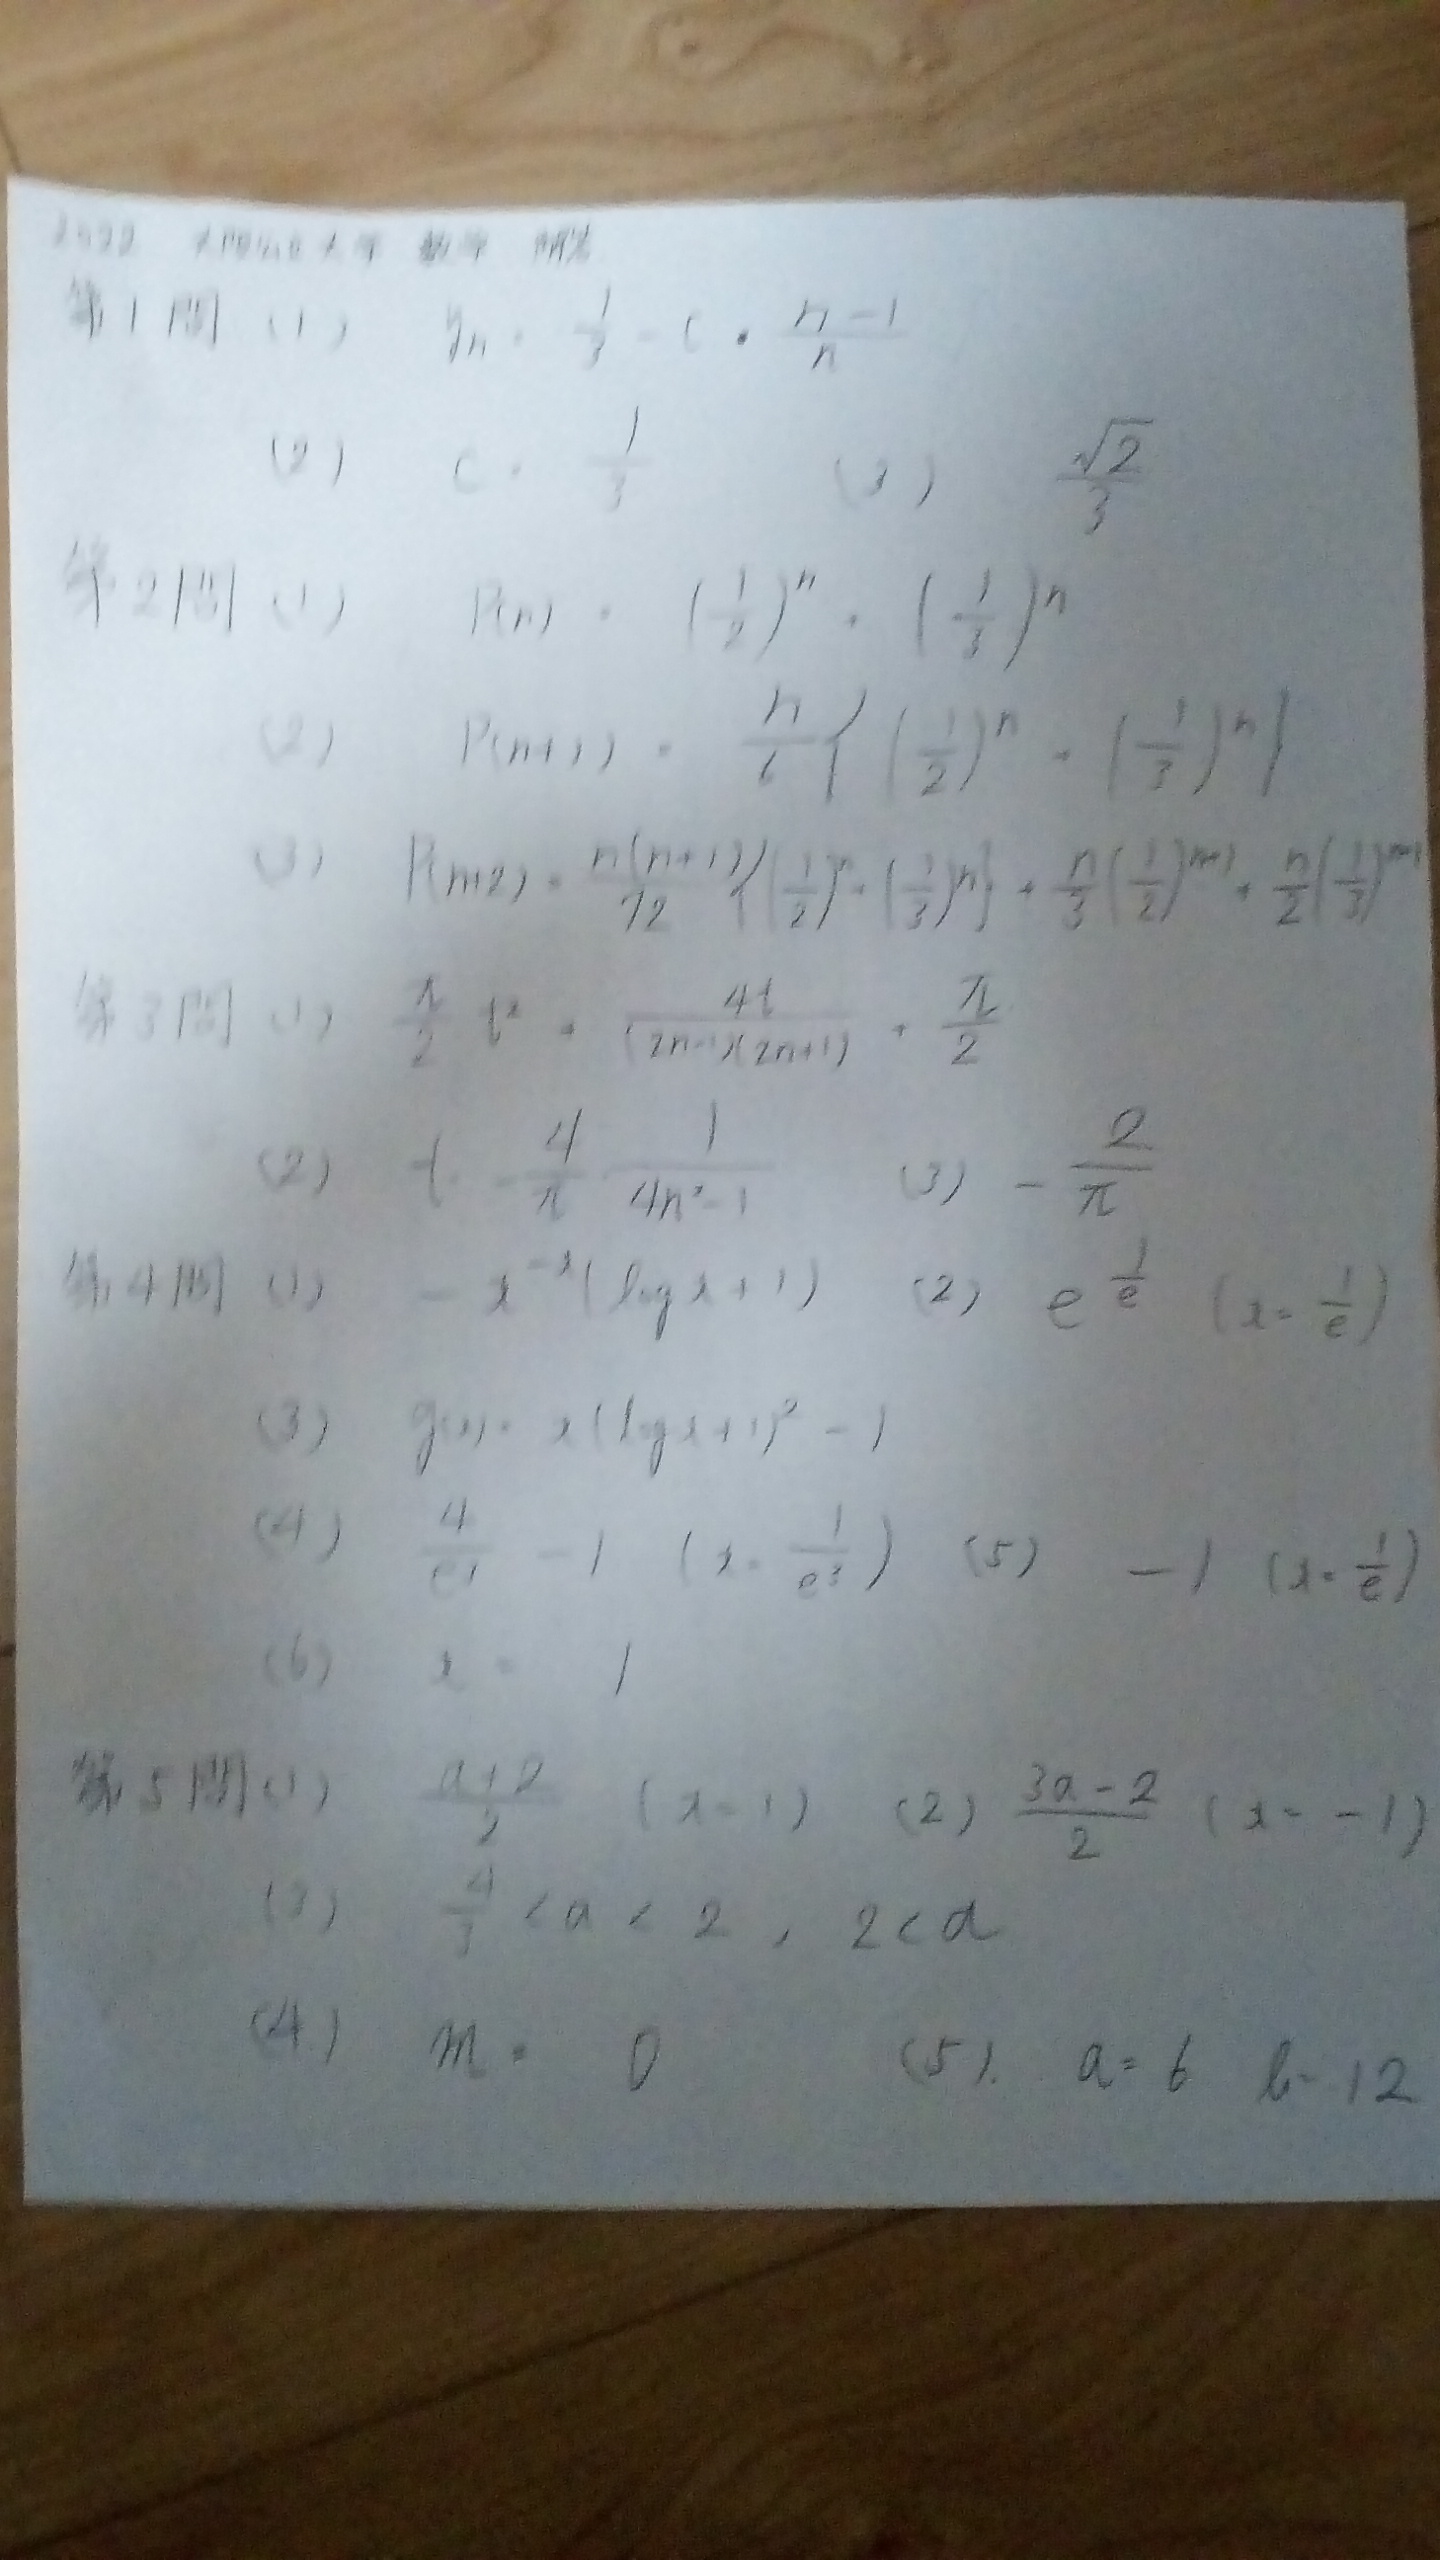 2022 大学 数学
第1問 (1) yn = 1/3 - c・(n-1)/n
(2) c = 1/3 (3) √2/3
第2問 (1) P(n) = (1/2)^n + (1/3)^n
(2) P(n+1) = n/6{(1/2)^n + (1/3)^n}
(3) P(n+2) = n(n+1)/72{(1/2)^n + (1/3)^n} + n/3(1/2)^(n+1) + n/2(1/3)^(n+1)
第3問 (1) π/2 t² + 4t/((2n-1)(2n+1)) + π/2
(2) t = -4/π 1/(4n²-1) (3) -2/π
第4問 (1) -x^(-x)(log x+1) (2) e^(1/e) (x=1/e)
(3) g(x) = x(log x+1)² - 1
(4) 4/e³ - 1 (x=1/e³) (5) -1 (x=1/e)
(6) x = 1
第5問 (1) (a+2)/2 (x=1) (2) (3a-2)/2 (x=-1)
(3) 4/3 < a < 2 , 2 < a
(4) m = 0 (5). a=6 b=12